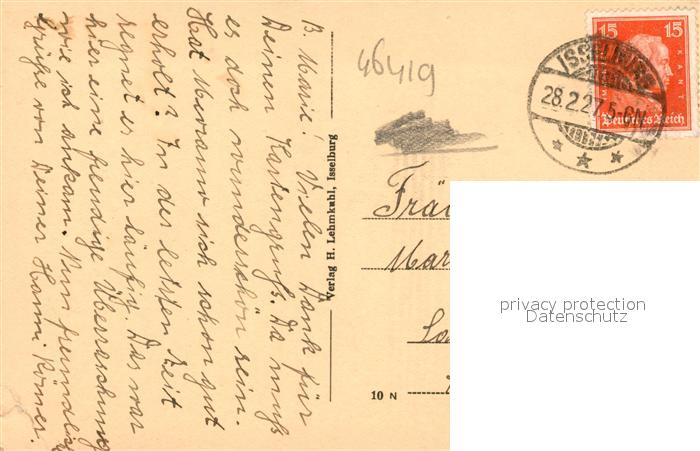 B. Marie! Vielen Dank für
Deinen Kartengruß. Da muß
es doch wunderschön sein.
Hat Mama sich schon gut
erholt? In der letzten Zeit
regnet es hier häufig. Das war
hier eine freudige Überraschung
wie ich ankam. Nun freundl.
Grüße von Deiner Hanni Römer.
Verlag H. Lehmkuhl, Isselburg
46419
ISSELBURG
28.2.27. 5-6N.
15 15
KANT
Deutsches Reich
Fräu
Mar
10 N
privacy protection
Datenschutz